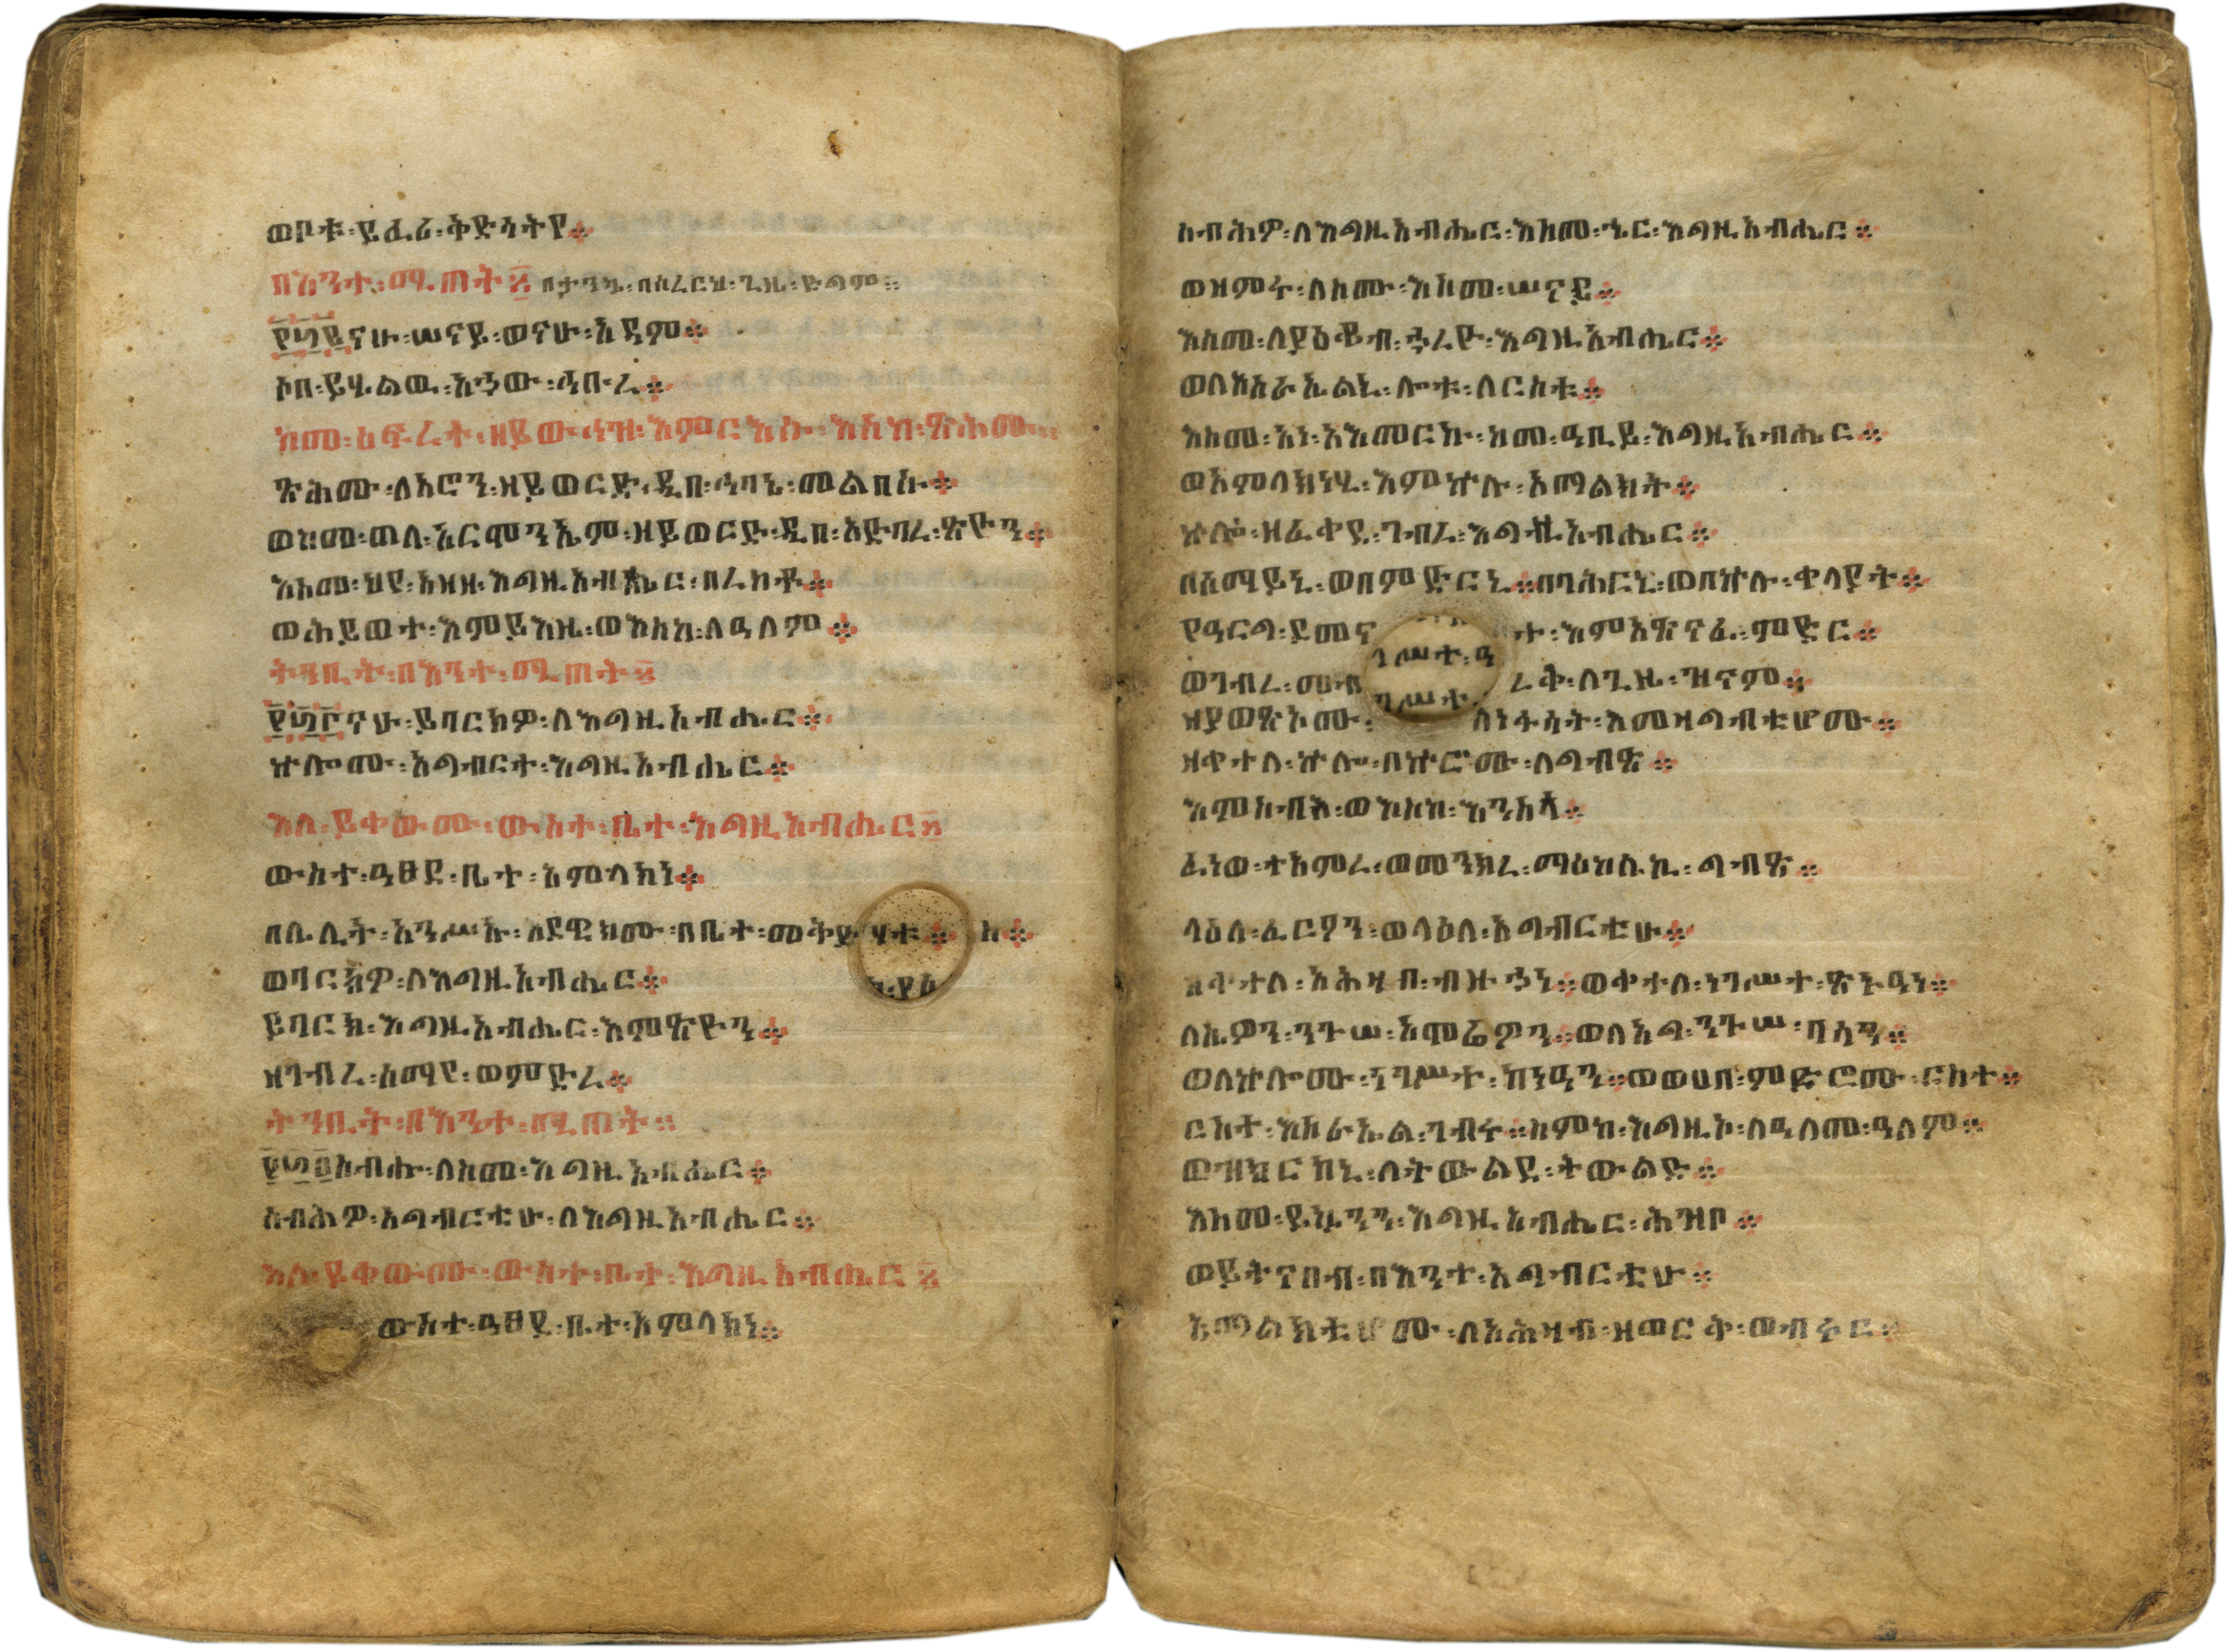 ወቦቱ፡ይፈሪ፡ቅድሳትየ፨
በእንተ፡ሚጠት፨
፻፴፪ናሁ፡ሠናይ፡ወናሁ፡አዳም፨
ሶበ፡ይሄልዉ፡አኀው፡ኅቡረ፨
ከመ፡ዕፍረት፡ዘይውኅዝ፡እምርእሱ፡እስከ፡ጽሕሙ፨
ጽሕሙ፡ለአሮን፡ዘይወርድ፡ዲበ፡ኅባኔ፡መልበሱ፨
ወከመ፡ጠለ፡አርሞንኤም፡ዘይወርድ፡ዲበ፡አድባረ፡ጽዮን፨
እስመ፡ህየ፡አዘዘ፡እግዚአብሔር፡በረከቶ፨
ወሕይወተ፡እምይእዜ፡ወእስከ፡ለዓለም፨
ትንቢት፡በእንተ፡ሚጠት፨
፻፴፫ናሁ፡ይባርክዎ፡ለእግዚአብሔር፨
ኵሎሙ፡አግብርተ፡እግዚአብሔር፨
እለ፡ይቀውሙ፡ውስተ፡ቤተ፡እግዚአብሔር፨
ውስተ፡ዓፀደ፡ቤተ፡አምላክነ፨
በሌሊት፡አንሥኡ፡እደዊክሙ፡በቤተ፡መቅደ
ወባርክዎ፡ለእግዚአብሔር፨
ይባርክ፡እግዚአብሔር፡እምጽዮን፨
ዘገብረ፡ሰማየ፡ወምድረ፨
ትንቢት፡በእንተ፡ሚጠት፨
፻፴፬ሰብሑ፡ለስመ፡እግዚአብሔር፨
ሰብሕዎ፡አግብርቲሁ፡ለእግዚአብሔር፨
እለ፡ይቀውሙ፡ውስተ፡ቤተ፡እግዚአብሔር፨
ውስተ፡ዓፀደ፡ቤተ፡አምላክነ፨
ሰብሕዎ፡ለእግዚአብሔር፡እስመ፡ኄር፡እግዚአብሔር፨
ወዘምሩ፡ለስሙ፡እስመ፡ሠናይ፨
እስመ፡ለያዕቆብ፡ኀረዮ፡እግዚአብሔር፨
ወለእስራኤልኒ፡ሎቱ፡ለርስቱ፨
እስመ፡አነ፡አእመርኩ፡ከመ፡ዓቢይ፡እግዚአብሔር፨
ወአምላክነሂ፡እምኵሉ፡አማልክት፨
ኵሎ፡ዘፈቀደ፡ገብረ፡እግዚአብሔር፨
በሰማይኒ፡ወበምድርኒ፨በባሕርኒ፡ወበኵሉ፡ቀላያት፨
የዓርግ፡ደመና ተ፡እምአጽናፈ፡ምድር፨
ወገብረ፡መብ ረቅ፡ለጊዜ፡ዝናም፨
ዘያወጽኦሙ፡ ለነፋሳት፡እመዛግብቲሆሙ፨
ዘቀተለ፡ኵሎ፡በኵሮሙ፡ለግብፅ፨
እምሰብእ፡ወእስከ፡እንስሳ፨
ፈነወ፡ተአምረ፡ወመንክረ፡ማዕከሌኪ፡ግብፅ፨
ላዕለ፡ፈርዖን፡ወላዕለ፡አግብርቲሁ፨
ዘቀተለ፡አሕዛበ፡ብዙኃነ፨ወቀተለ፡ነገሥተ፡ጽኑዓነ፨
ለሴዎን፡ንጉሠ፡አሞሬዎን፨ወለአግ፡ንጉሠ፡ባሳን፨
ወለኵሎሙ፡ነገሥተ፡ከነዓን፨ወወሀበ፡ምድሮሙ፡ርስተ፨
ርስተ፡እስራኤል፡ገብሩ፨ስምከ፡እግዚኦ፡ለዓለመ፡ዓለም፨
ወዝክርከኒ፡ለትውልደ፡ትውልድ፨
እስመ፡ይኴንን፡እግዚአብሔር፡ሕዝቦ፨
ወይትናበብ፡በእንተ፡አግብርቲሁ፨
አማልክቲሆሙ፡ለአሕዛብ፡ዘወርቅ፡ወብሩር፨